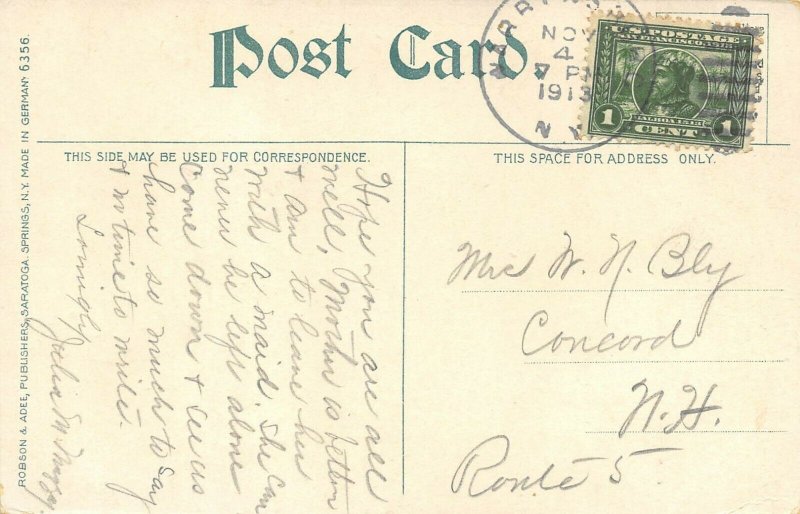 Post Card.
NOV
4
7 PM
1913
N.Y.
U.S. POSTAGE
SAN FRANCISCO 1915
BALBOA 1513
1 CENT 1
THIS SIDE MAY BE USED FOR CORRESPONDENCE.
THIS SPACE FOR ADDRESS ONLY.
Hope you are all
well, Mother is better
+ am to leave her
with a maid. She can
never be left alone
Come down + see us
have so much to say
+ no time to write.
Lovingly
Julia M.
Mrs W. N. Bly
Concord
N.H.
Route 5
ROBSON & ADEE, PUBLISHERS, SARATOGA SPRINGS, N.Y. MADE IN GERMANY 6356.